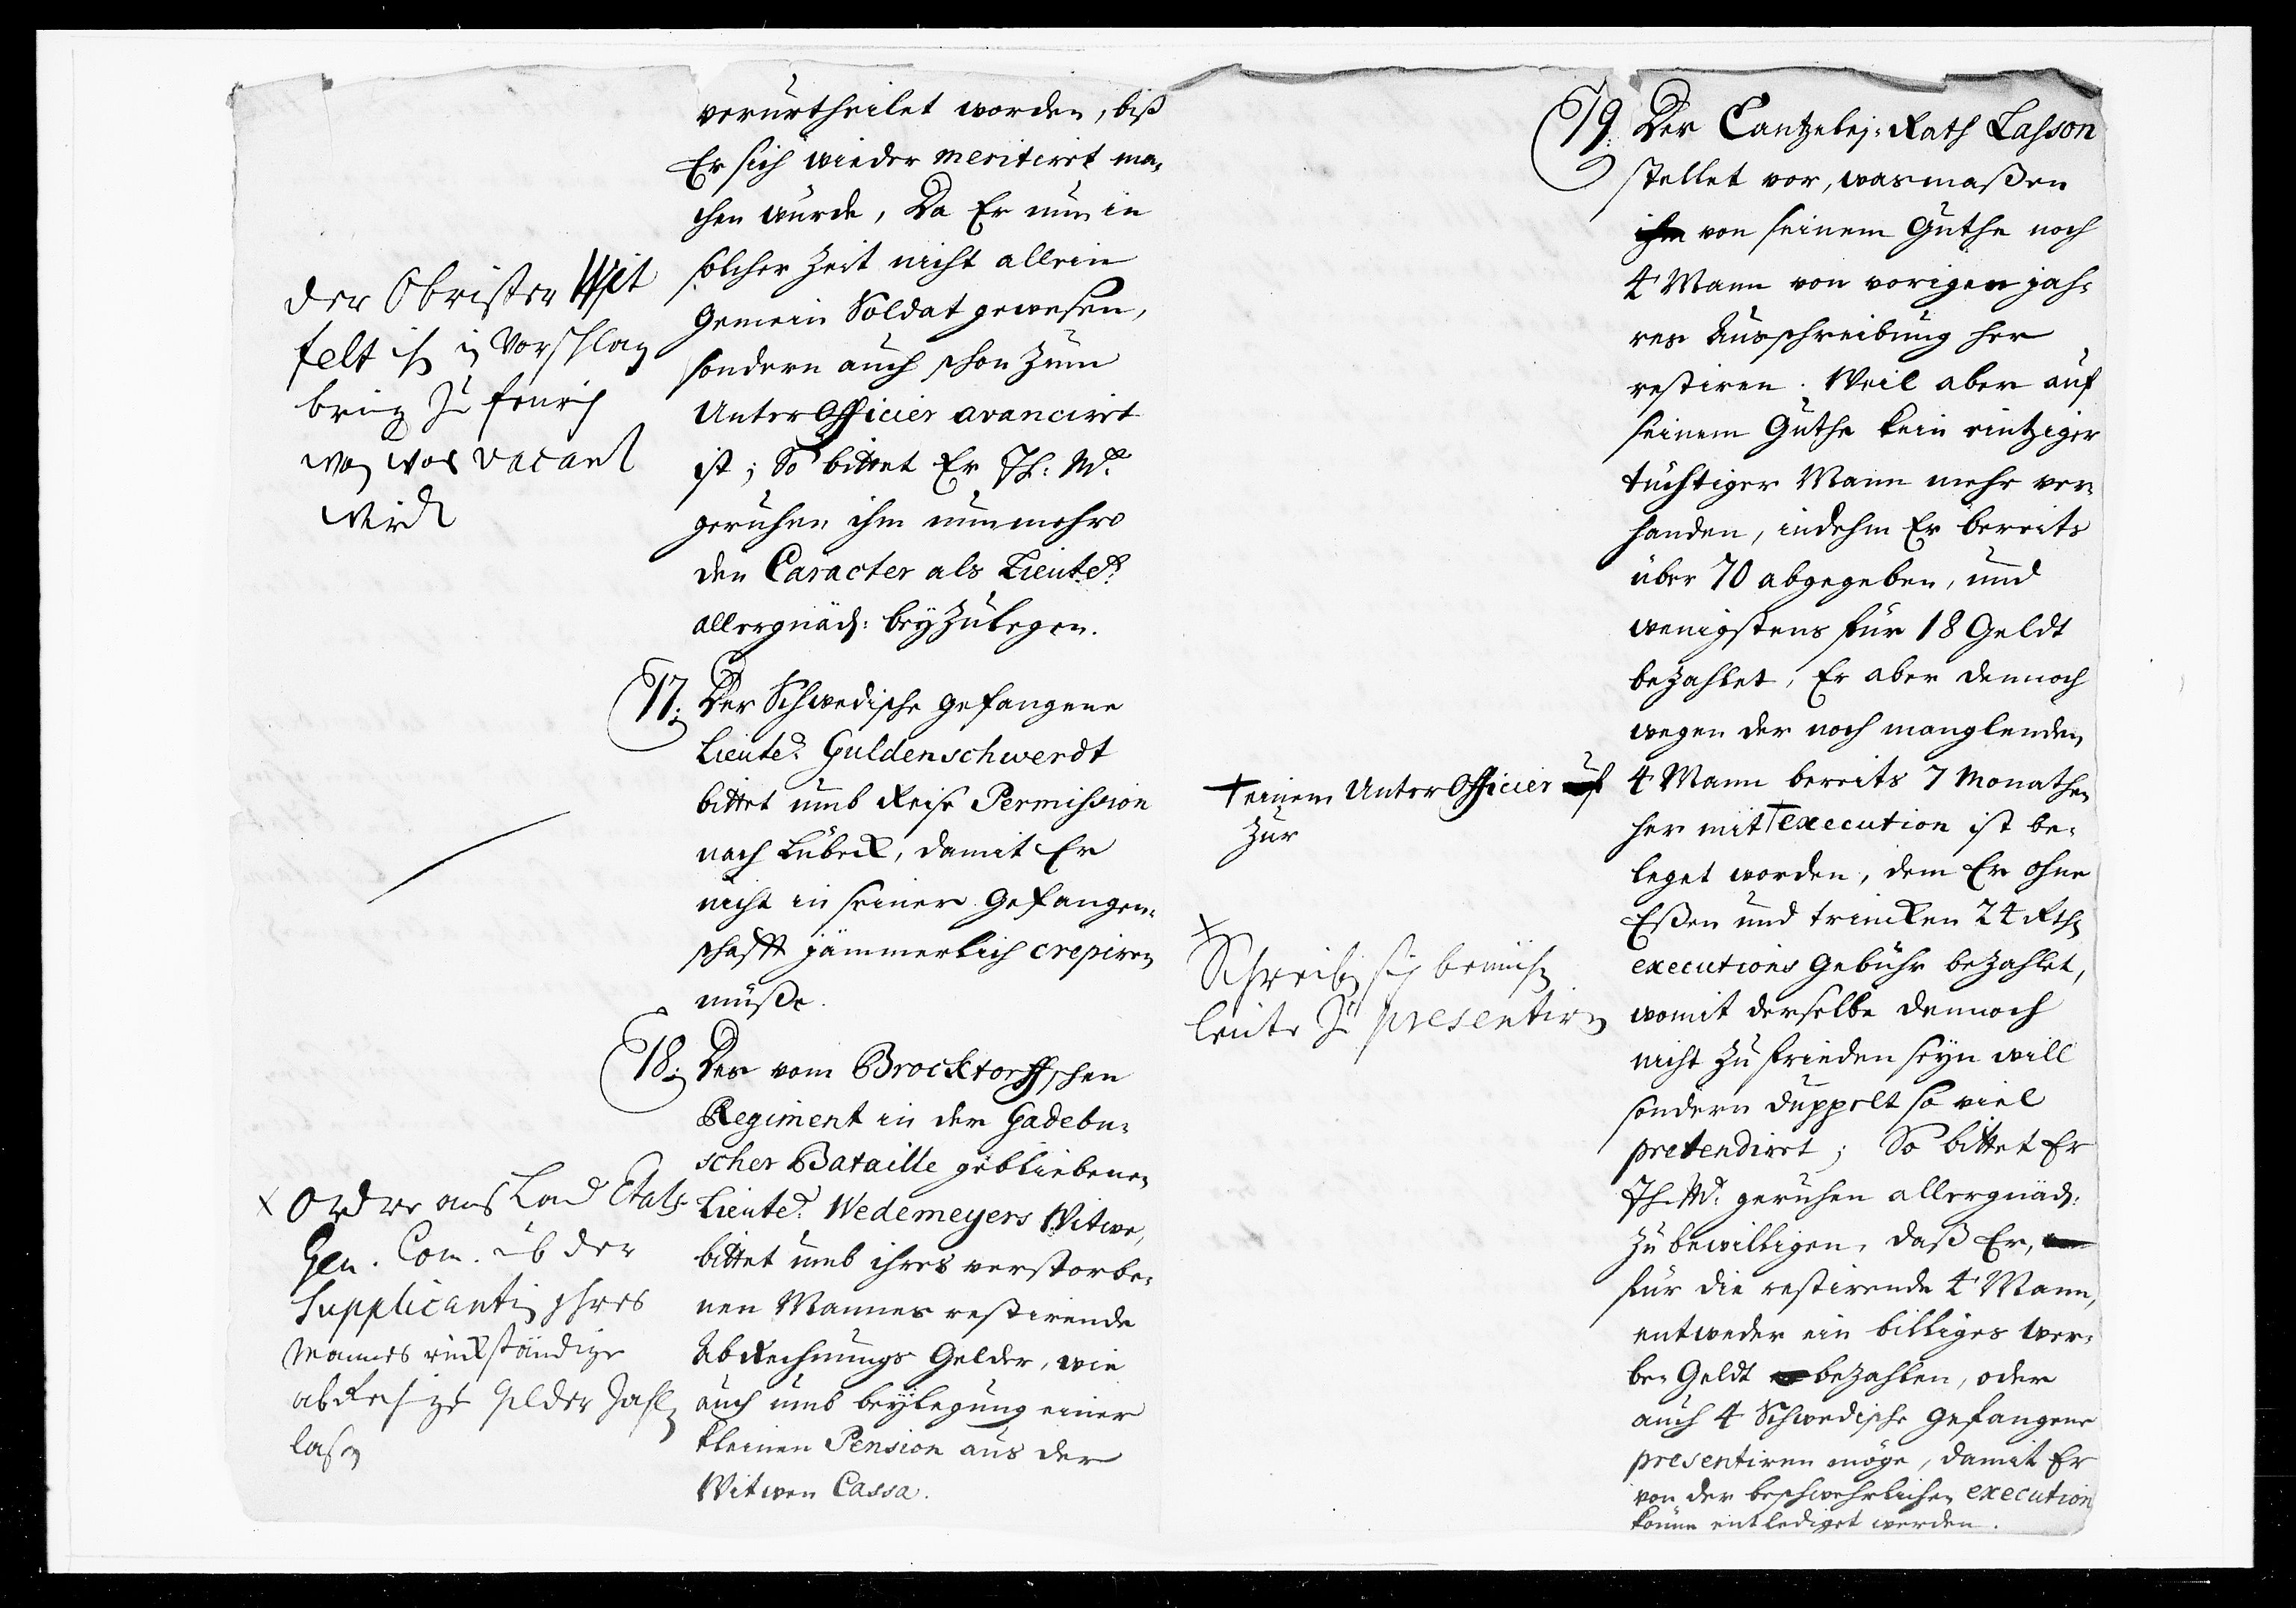 verurtheilet worden, biß
Er sich wieder meritiret ma-
chen würde, Da Er nun in
solcher Zeit nicht allein
Gemein Soldat gewesen,
sondern auch schon zum
Unter Officier avanciret
ist; So bittet Er Ih: Mt.
geruhen ihm nunmehro
den Caracter als Lieutet.
allergnäd: beyzulegen.
der Obrister Wit
felt ist in Vorschlag
bring zu fenrich
wan was vacant
wird
17. Der Schwedische gefangene
Lieutet. Guldenschwerdt
bittet umb Reise Permission
nach Lübeck, damit Er
nicht in seiner Gefangen-
schafft jämmerlich crepiren
müße.
18. Des vom Brocktorffschen
Regiment in der Gadebu-
scher Bataille gebliebenen
Lieutet. Wedemeyers Witwe,
bittet umb ihres verstorbe-
nen Mannes restirende
AbRechnungs Gelder, wie
auch umb beylegung einer
kleinen Pension aus der
Witwen Cassa.
x Ordre ans Land Etats
Gen. Com. der
Supplicantin ihres
Mannes rückständige
Gelder Zahlen
laßen
19. Der Cantzeley-Rath Laßon
stellet vor, wasmaßen
ihm von seinem Guthe noch
4 Mann von vorigen jah-
res Ausschreibung her
restiren. Weil aber auf
seinem Guthe kein eintziger
tüchtiger Mann mehr ver-
handen, indehm Er bereits
über 70 abgegeben, und
wenigstens für 18 Geldt
bezahlet, Er aber dennoch
wegen der noch manglenden
4 Mann bereits 7 Monathen
her mit † execution ist be-
leget worden, dem Er ohne
Eßen und trincken 24 Rth
executions Gebühr bezahlet,
womit derselbe dennoch
nicht zu frieden seyn will
sondern duppelt so viel
pretendiret; So bittet Er
Ih. Mt. geruhen allergnäd:
zu bewilligen, daß Er,
für die restirende 4 Mann,
entweder ein billiges Wer-
be-Geldt bezahlen, oder
auch 4 Schwedische gefangene
presentiren möge, damit Er
von der beschwehrlichen execution
könne entlediget werden.
† einem Unter Officier
zur
x
sich bemühen
leute zu presentiren